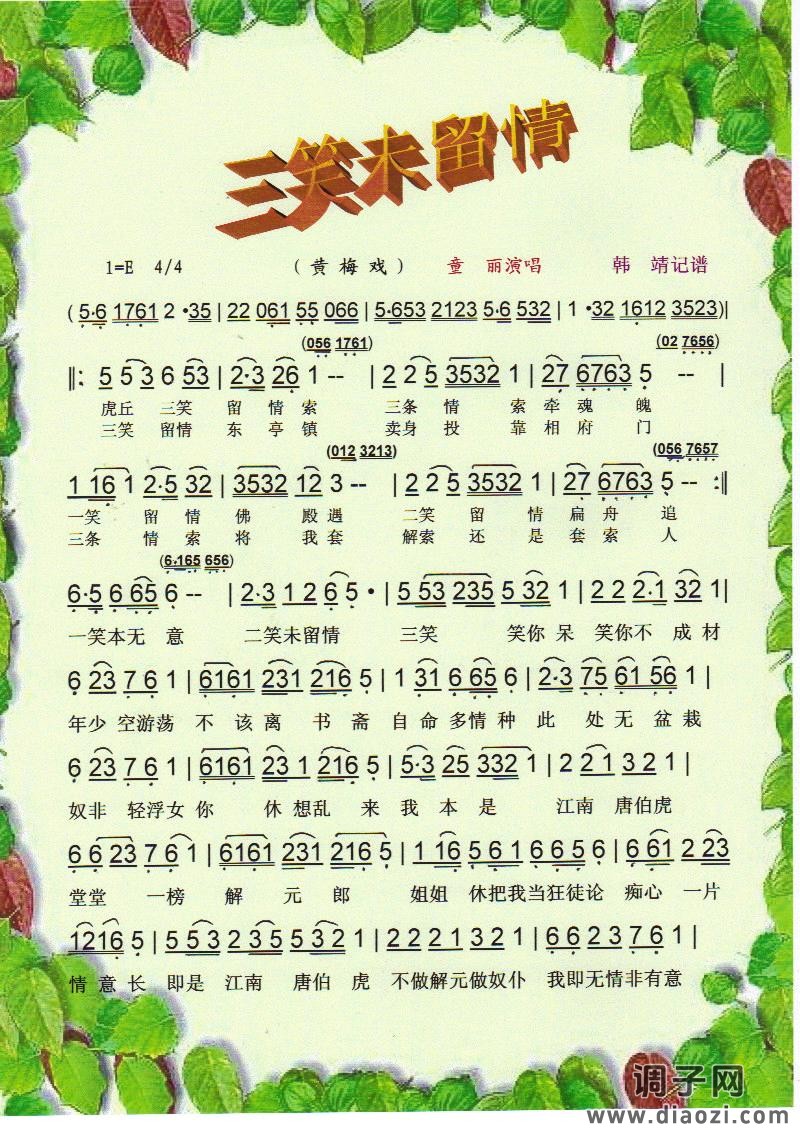 三笑未留情
1=E 4/4 （黄梅戏） 童 丽演唱 韩 靖记谱
( 5·6 1761 2 ·35 | 22 061 55 066 | 5·653 2123 5·6 532 | 1 ·32 1612 3523 )|
(056 1761) (02 7656)
‖: 5 5 3 6 53 | 2·3 26 1 -- | 2 2 5 3532 1 | 27 6763 5 -- |
虎丘 三笑 留 情 索 三条 情 索 牵 魂 魄
三笑 留情 东 亭 镇 卖身 投 靠 相 府 门
(012 3213) (056 7657
1 16 1 2·5 32 | 3532 12 3 -- | 2 2 5 3532 1 | 27 6763 5 -- :‖
一笑 留 情 佛 殿 遇 二笑 留 情 扁 舟 追
三条 情 索 将 我 套 解索 还 是 套 索 人
(6·165 656)
6·5 6 65 6 -- | 2·3 1 2 6 5 · | 5 53 235 5 32 1 | 2 2 2·1 32 1 |
一笑本无 意 二笑未留情 三笑 笑你 呆 笑你不 成 材
6 23 7 6 1 | 6161 231 216 5 | 1 31 6 65 6 | 2·3 75 61 56 1 |
年少 空游荡 不 该 离 书 斋 自 命 多 情 种 此 处 无 盆 栽
6 23 7 6 1 | 6161 23 1 216 5 | 5·3 25 332 1 | 2 2 1 3 2 |
奴非 轻浮女 你 休 想 乱 来 我 本 是 江南 唐伯虎
6 6 23 7 6 1 | 6161 231 216 5 | 1 16 5 6 1 6 6 5 6 | 6 61 2 23
堂堂 一榜 解 元 郎 姐姐 休把我当狂徒论 痴心 一片
1216 5 | 5 5 3 2 3 5 5 3 2 1 | 2 2 2 1 3 2 | 6 6 2 3 7 6 1 |
情 意 长 即是 江南 唐伯 虎 不做解元做奴仆 我即无情非有意
调子网
www.diaozi.com